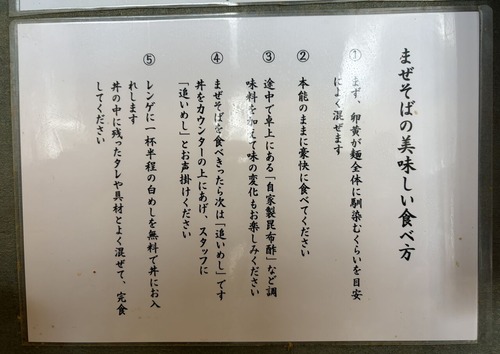 まぜそばの美味しい食べ方
① まず、卵黄が麺全体に馴染むくらいを目安
によく混ぜます
② 本能のままに豪快に食べてください
③ 途中で卓上にある「自家製昆布酢」など調
味料を加えて味の変化もお楽しみください
④ まぜそばを食べきったら次は「追いめし」です
丼をカウンターの上にあげ、スタッフに
「追いめし」とお声掛けください
⑤ レンゲに一杯半程の白めしを無料で丼にお入
れします
丼の中に残ったタレや具材とよく混ぜて、完食
してください